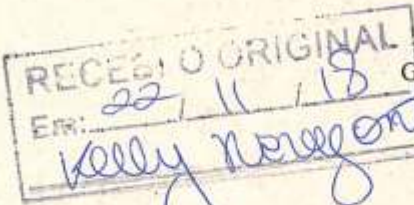 RECEBI O ORIGINAL
Em: 22 / 11 / 18
Kelly